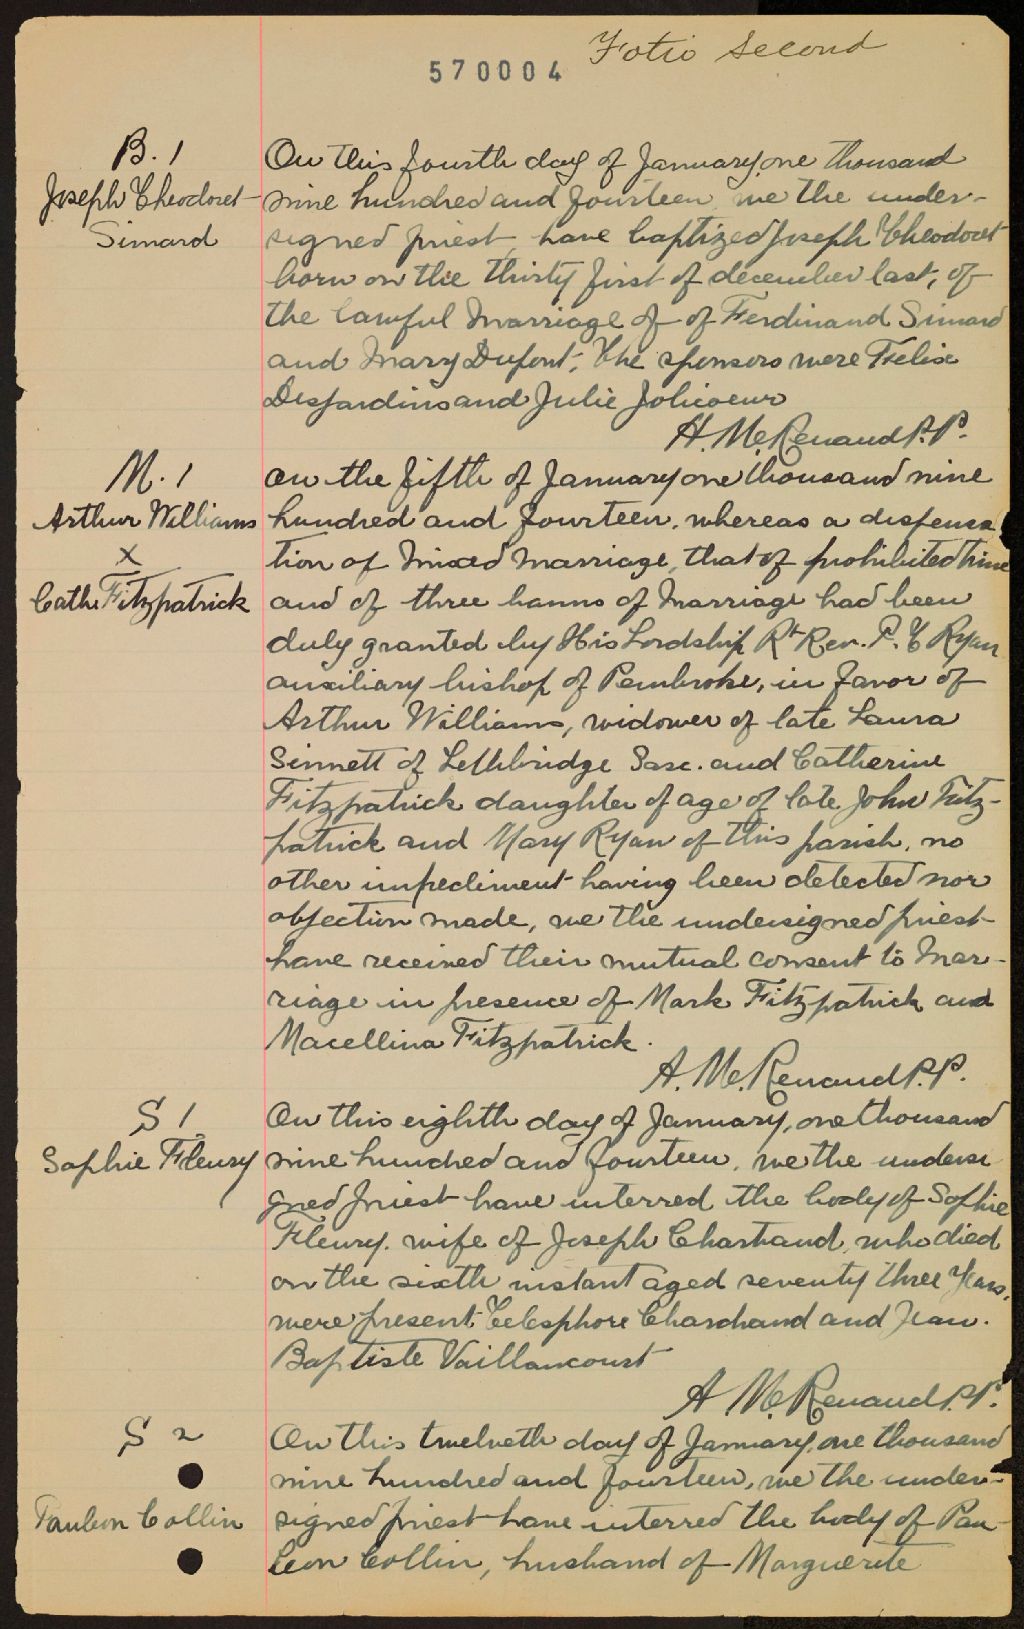 Folio Second
570004
B. 1
Joseph Theodoret
Simard
On this fourth day of January one thousand
nine hundred and fourteen we the under-
signed priest, have baptized Joseph Theodoret
born on the thirty first of december last, of
the lawful marriage of of Ferdinand Simard
and Mary Dupont; The sponsors were Felix
Desjardins and Julie Jolicoeur
A. McRenaud P.P.
M. 1
Arthur Williams
X
Cath. Fitzpatrick
On the fifth of January one thousand nine
hundred and fourteen, whereas a dispensa
tion of mixed marriage, that of prohibited time
and of three banns of marriage had been
duly granted by His Lordship Rt Rev. P. T Ryan
auxiliary bishop of Pembroke, in favor of
Arthur Williams, widower of late Laura
Sinnett of Lethbridge Sasc. and Catherine
Fitzpatrick daughter of age of late John Fitz-
patrick and Mary Ryan of this parish, no
other impediment having been detected nor
objection made, we the undersigned priest
have received their mutual consent to mar-
riage in presence of Mark Fitzpatrick and
Macellina Fitzpatrick.
A. McRenaud P.P.
S 1
Sophie Fleury
On this eighth day of January, one thousand
nine hundred and fourteen, we the undersi
gned priest have interred the body of Sophie
Fleury, wife of Joseph Chartrand, who died
on the sixth instant aged seventy three years,
were present Telesphore Charchand and Jean.
Baptiste Vaillancourt
A McRenaud P.P.
S 2
Pauleon Collin
On this twelveth day of January, one thousand
nine hundred and fourteen, we the under-
signed priest have interred the body of Pau
leon Collin, husband of Marguerite